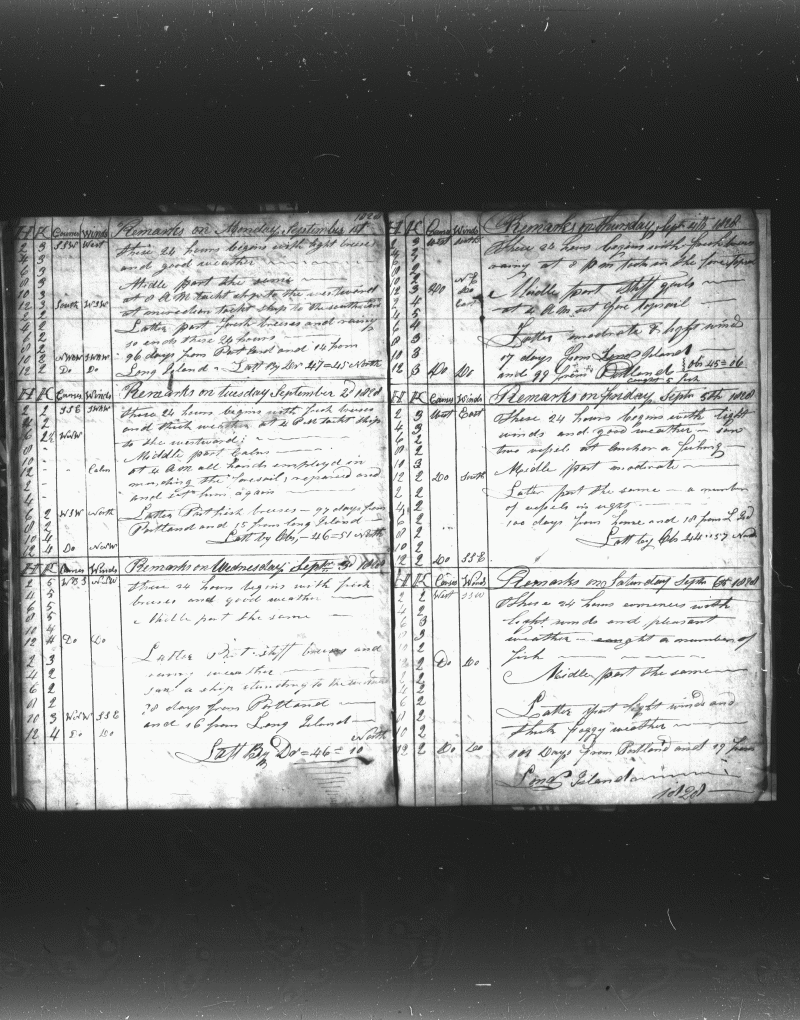 1828
H K Course Winds Remarks on Monday September 1st
2 3 SSW West these 24 hours begins with light breeses
4 3 and good weather
6 3
8 3 Midle part the same
10 3 at 8 A M tackt ship to the westward
12 3 South WSW at meredien tackt ship to the southward
2 2 Latter part fresh breeses and rainy
4 2 so ends these 24 hours
96 days from Portland and 14 from
12 2 Do Do Long Island - Latt By Do 47=45 North
H K Course Winds Remarks on tuesday September 2d 1828
2 2 SSE these 24 hours begins with fresh breeses
4 2 and thick weather at 4 P M tackt ship
6 2 to the westward
8 - Midle part Calm
12 - - Calm at 4 A M all hands employed in
2 - the foresail, repaired and
4 - and set him again
6 2 WSW North Latter Part fresh breses - 97 days from
8 2 Portland and 15 from long Island
10 4 Latt by Obs - 46=51 North
12 4 Do
H K Course Winds Remarks on Wednesday Sept 3d 1828
2 5 these 24 hours begins with fresh
4 5 breeses and good weather
6 5 Midle part the same
8 5
10 4
12 4 Do Do
2 3 Latter Part stiff breeses and
4 2 rainy weather
6 2 saw a ship standing to the
8 2 98 days from Portland
10 3 WNW SSE and 16 from Long Island
12 4 Do Do North
Latt By Do = 46 = 10
H K Course Winds Remarks on Thursday Sept 4th 1828
2 3 West South These 24 hours begins with fresh
4 2 at 8 P M took in the fore topsail
10 2 NE
12 3 Do Do Middle part stiff gails
2 4 East at 4 A M set fore topsail
4 5
6 4 Latter moderate & light wind
8 3
10 3 17 days from Long Island
12 3 Do Do and 99 from Portland Obs 45=06
caught 5 fish
H K Course Winds Remarks on Friday Septr 5th 1828
2 3 West East These 24 hours begins with light
4 3 winds and good weather - saw
6 2 two vesels at anchor a fishing
10 3 Midle part moderate
12 2 Do South
2 2 Later part the same - a number
4 2 of vesels in sight
6 2 100 days from home and 18 from L Isd
8 2 Latt by Obs 44=57 Nord
10 2
12 2 Do SSE
H K Course Winds Remarks on Saturday Septr 6th 1828
2 2 West SSW These 24 hours comences with
4 2 light winds and pleasant
6 3 weather - caught a number of
8 3 fish
12 2 Do Do
2 2 Midle part the same
4 2
6 2 Latter part light winds and
8 2 thick foggy weather
10 2
12 2 Do Do 101 Days from Portland and 19 from
Long Island
1828